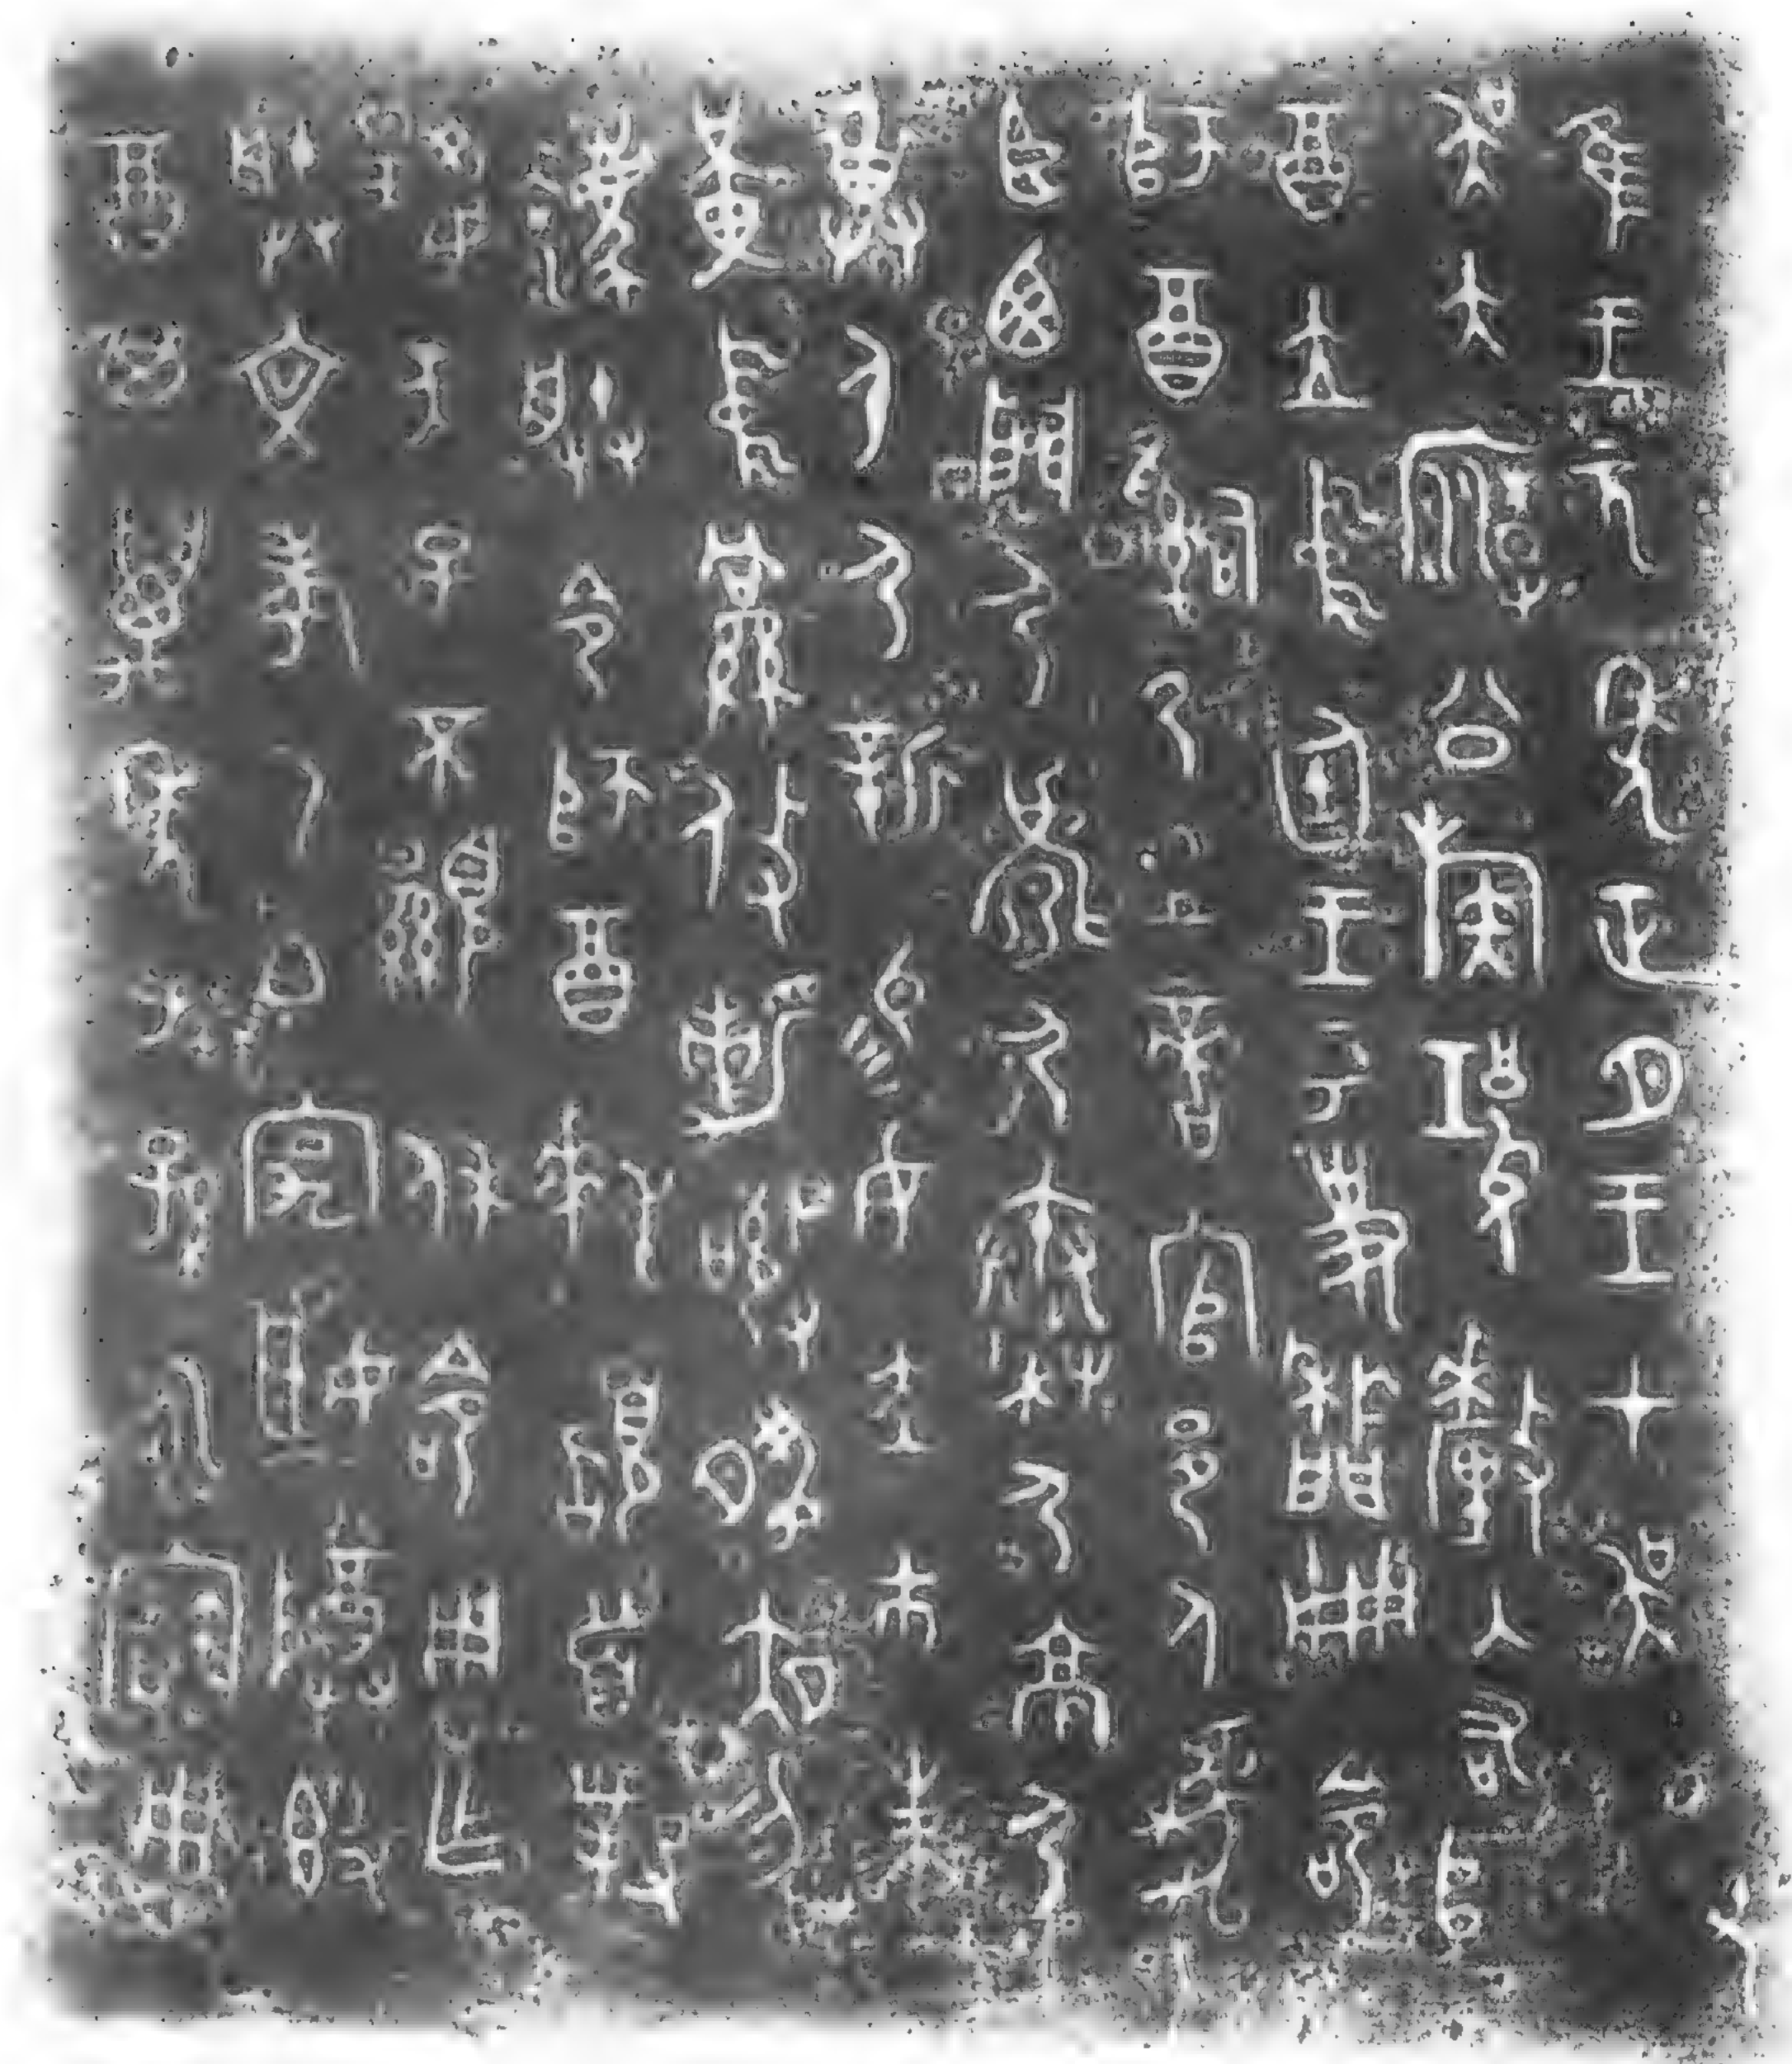 隹王元年正月王才吳各
吳大廟公族𤔲釐入右師
酉立中廷王乎史牆冊命
師酉嗣乃且啻官邑人虎
臣西門夷𩁹夷秦夷京夷
畀身夷新易女赤市朱
黃中絅攸勒敬夙夜勿
灋朕令師酉拜稽首對
揚天子不顯休命用乍
朕文考乙白宄姬尊簋
酉其萬年子子孫孫永寶用